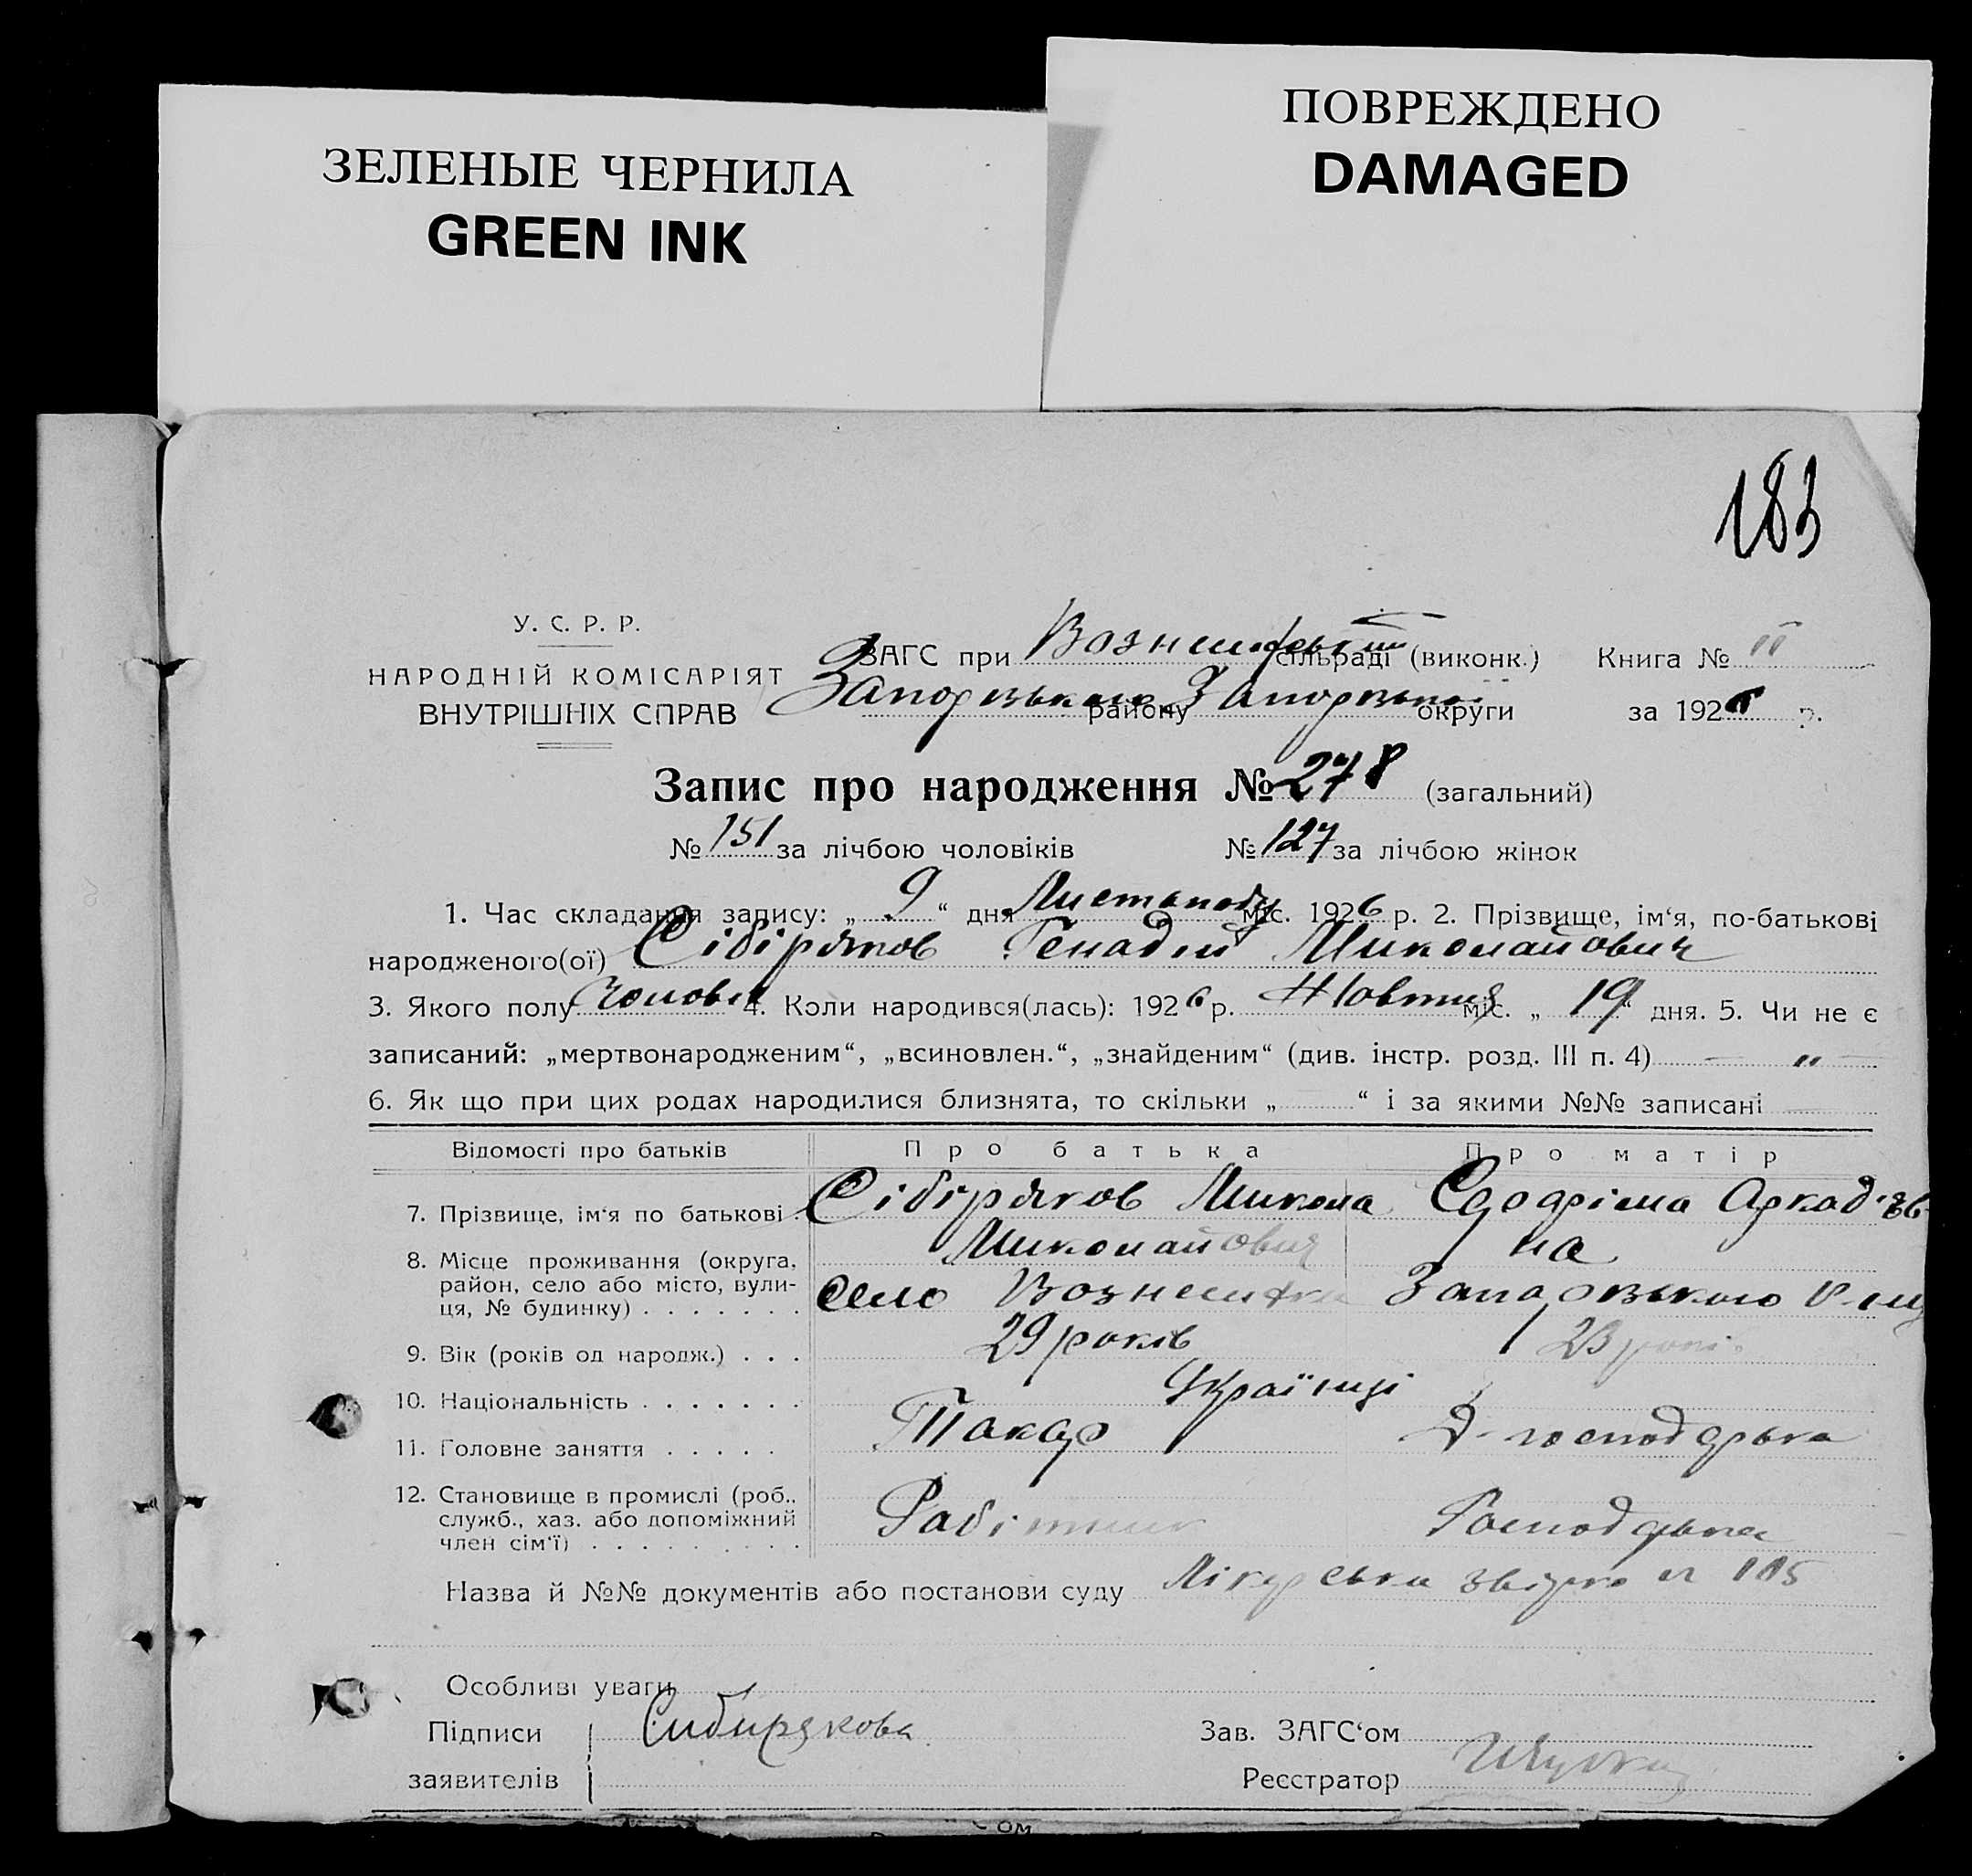 ПОВРЕЖДЕНО
DAMAGED
ЗЕЛЕНЫЕ ЧЕРНИЛА
GREEN INK
183
У. С. Р. Р.
НАРОДНІЙ КОМІСАРІЯТ
ВНУТРІШНІХ СПРАВ
ЗАГС при Вознесенській сільраді (виконк.) Книга № II
Запорізького району Запорізької округи за 1926 р.
Запис про народження № 278 (загальний)
№ 151 за лічбою чоловіків № 127 за лічбою жінок
1. Час складання запису: „ 9 “ дня Листопаду міс. 1926 р. 2. Прізвище, ім‘я, по-батькові
народженого(ої) Сібіряков Генадій Миколайович
3. Якого полу Чолов. 4. Коли народився(лась): 1926 р. Жовтня міс. „ 19 “ дня. 5. Чи не є
записаний: „мертвонародженим“, „всиновлен.“, „знайденим“ (див. інстр. розд. III п. 4) — „ —
6. Як що при цих родах народилися близнята, то скільки „ “ і за якими №№ записані
Відомості про батьків Про батька Про матір
7. Прізвище, ім‘я по батькові . Сібіряков Микола Миколайович Аркадієвна
8. Місце проживання (округа, район, село або місто, вулиця, № будинку) . . . . . . . село Вознесенка Запорізького
9. Вік (років од народж.) . . . 29 років 23 рокі
10. Національність . . . . . . . Українці
11. Головне заняття . . . . . Токар Д-господарка
12. Становище в промислі (роб., служб., хаз. або допоміжний член сім‘ї) . . . . . . . . . Робітник Господарка
Назва й №№ документів або постанови суду Лікарська звідка № 115
Особливі уваги
Підписи Сибирякова Зав. ЗАГС‘ом
заявителів Реєстратор